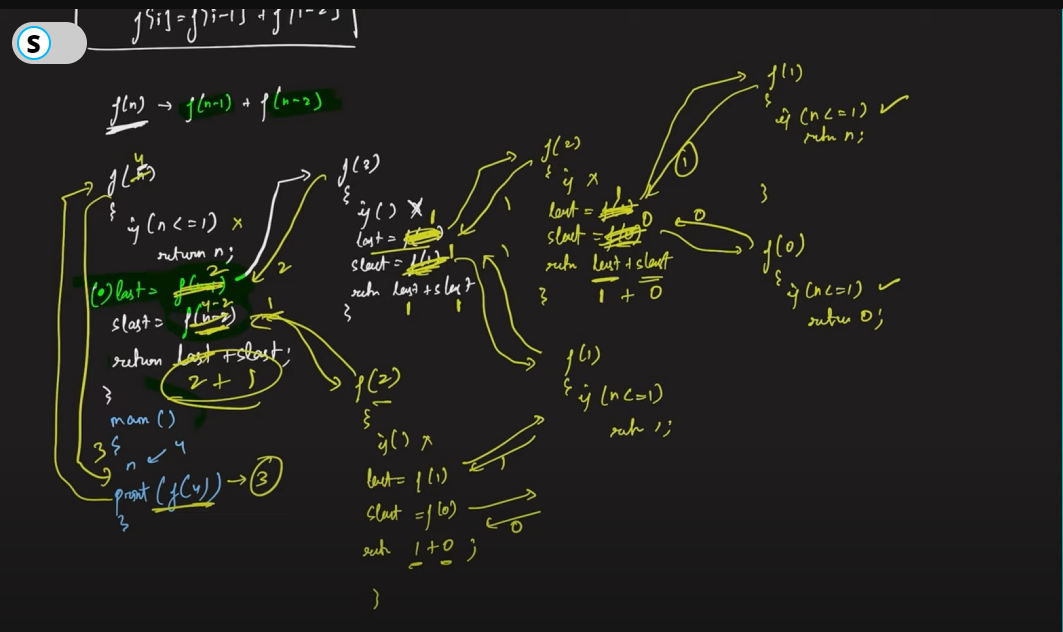 S
f[i] = f[i-1] + f[i-2]
f(n) → f(n-1) + f(n-2)
f(4)
{
if (n<=1) x
return n;
(0) last = 2
slast = f(4-2)
return last + slast;
2 + 1
}
main()
{
n ↙ 4
print (f(4)) → 3
}
3
2
1
f(3)
{
if () x
last = 1
slast = f(1) 1
retn last + slast
1 1
}
f(2)
{
if x
last = 1
slast = f(0) 0
retn last + slast
1 + 0
}
1
1
f(1)
{
if (n<=1) ✓
retn n;
}
1
f(0)
{
if (n<=1) ✓
return 0;
0
f(1)
{
if (n<=1)
retn 1;
f(2)
{
if () x
last = f(1)
1
slast = f(0)
0
retn 1 + 0 ;
}